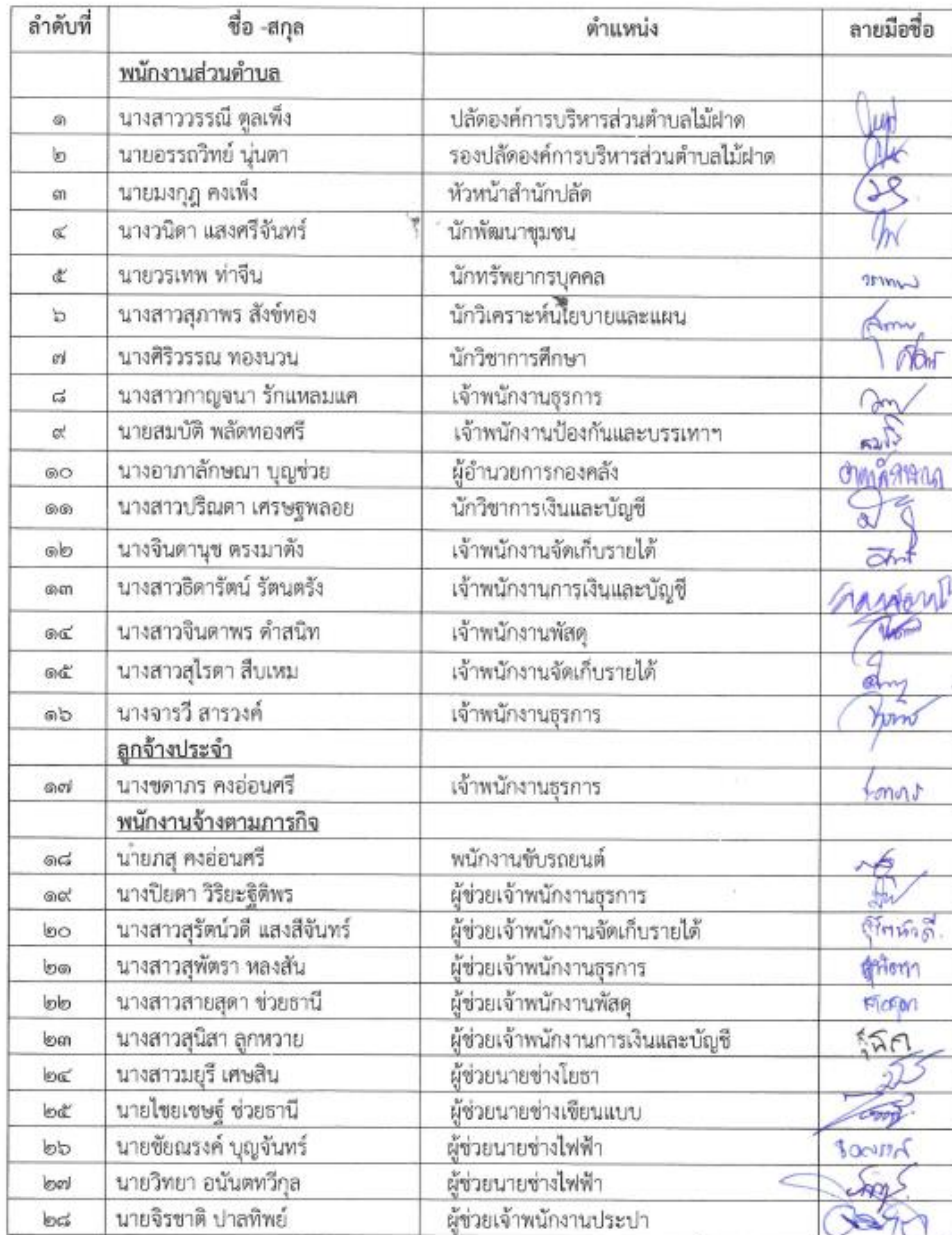 ลำดับที่ ชื่อ -สกุล ตำแหน่ง ลายมือชื่อ
พนักงานส่วนตำบล
๑ นางสาววรรณี ตูลเพ็ง ปลัดองค์การบริหารส่วนตำบลไม้ฝาด
๒ นายอรรถวิทย์ นุ่นดา รองปลัดองค์การบริหารส่วนตำบลไม้ฝาด
๓ นายมงกุฎ คงเพ็ง หัวหน้าสำนักปลัด
๔ นางวนิดา แสงศรีจันทร์ นักพัฒนาชุมชน
๕ นายวรเทพ ท่าจีน นักทรัพยากรบุคคล วรเทพ
๖ นางสาวสุภาพร สังข์ทอง นักวิเคราะห์นโยบายและแผน
๗ นางศิริวรรณ ทองนวน นักวิชาการศึกษา
๘ นางสาวกาญจนา รักแหลมแค เจ้าพนักงานธุรการ
๙ นายสมบัติ พลัดทองศรี เจ้าพนักงานป้องกันและบรรเทาฯ
๑๐ นางอาภาลักษณา บุญช่วย ผู้อำนวยการกองคลัง อาภาลักษณา
๑๑ นางสาวปริณดา เศรษฐพลอย นักวิชาการเงินและบัญชี
๑๒ นางจินดานุช ตรงมาตัง เจ้าพนักงานจัดเก็บรายได้
๑๓ นางสาวธิดารัตน์ รัตนตรัง เจ้าพนักงานการเงินและบัญชี
๑๔ นางสาวจินดาพร ดำสนิท เจ้าพนักงานพัสดุ
๑๕ นางสาวสุไรดา สืบเหม เจ้าพนักงานจัดเก็บรายได้
๑๖ นางจารวี สารวงค์ เจ้าพนักงานธุรการ
ลูกจ้างประจำ
๑๗ นางชดาภร คงอ่อนศรี เจ้าพนักงานธุรการ
พนักงานจ้างตามภารกิจ
๑๘ นายภสุ คงอ่อนศรี พนักงานขับรถยนต์
๑๙ นางปิยดา วิริยะฐิติพร ผู้ช่วยเจ้าพนักงานธุรการ
๒๐ นางสาวสุรัตน์วดี แสงสีจันทร์ ผู้ช่วยเจ้าพนักงานจัดเก็บรายได้
๒๑ นางสาวสุพัตรา หลงสัน ผู้ช่วยเจ้าพนักงานธุรการ สุพัตรา
๒๒ นางสาวสายสุดา ช่วยธานี ผู้ช่วยเจ้าพนักงานพัสดุ
๒๓ นางสาวสุนิสา ลูกหวาย ผู้ช่วยเจ้าพนักงานการเงินและบัญชี
๒๔ นางสาวมยุรี เศษสิน ผู้ช่วยนายช่างโยธา
๒๕ นายไชยเชษฐ์ ช่วยธานี ผู้ช่วยนายช่างเขียนแบบ
๒๖ นายชัยณรงค์ บุญจันทร์ ผู้ช่วยนายช่างไฟฟ้า
๒๗ นายวิทยา อนันตทวีกุล ผู้ช่วยนายช่างไฟฟ้า
๒๘ นายจิรชาติ ปาลทิพย์ ผู้ช่วยเจ้าพนักงานประปา